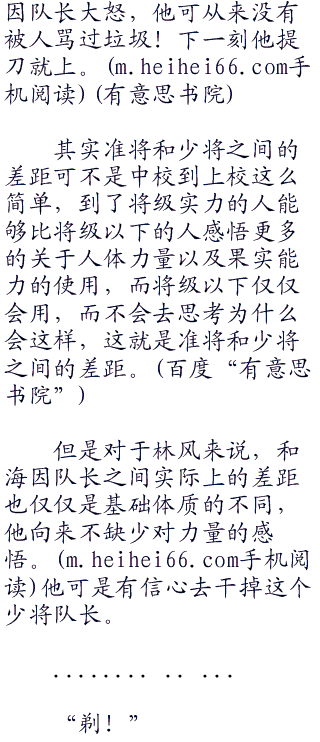 因队长大怒，他可从来没有
被人骂过垃圾！下一刻他提
刀就上。(m.heihei66.com手
机阅读)(有意思书院)
其实准将和少将之间的
差距可不是中校到上校这么
简单，到了将级实力的人能
够比将级以下的人感悟更多
的关于人体力量以及果实能
力的使用，而将级以下仅仅
会用，而不会去思考为什么
会这样，这就是准将和少将
之间的差距。(百度“有意思
书院”)
但是对于林风来说，和
海因队长之间实际上的差距
也仅仅是基础体质的不同，
他向来不缺少对力量的感
悟。(m.heihei66.com手机阅
读)他可是有信心去干掉这个
少将队长。
........ .. ...
“剃！”